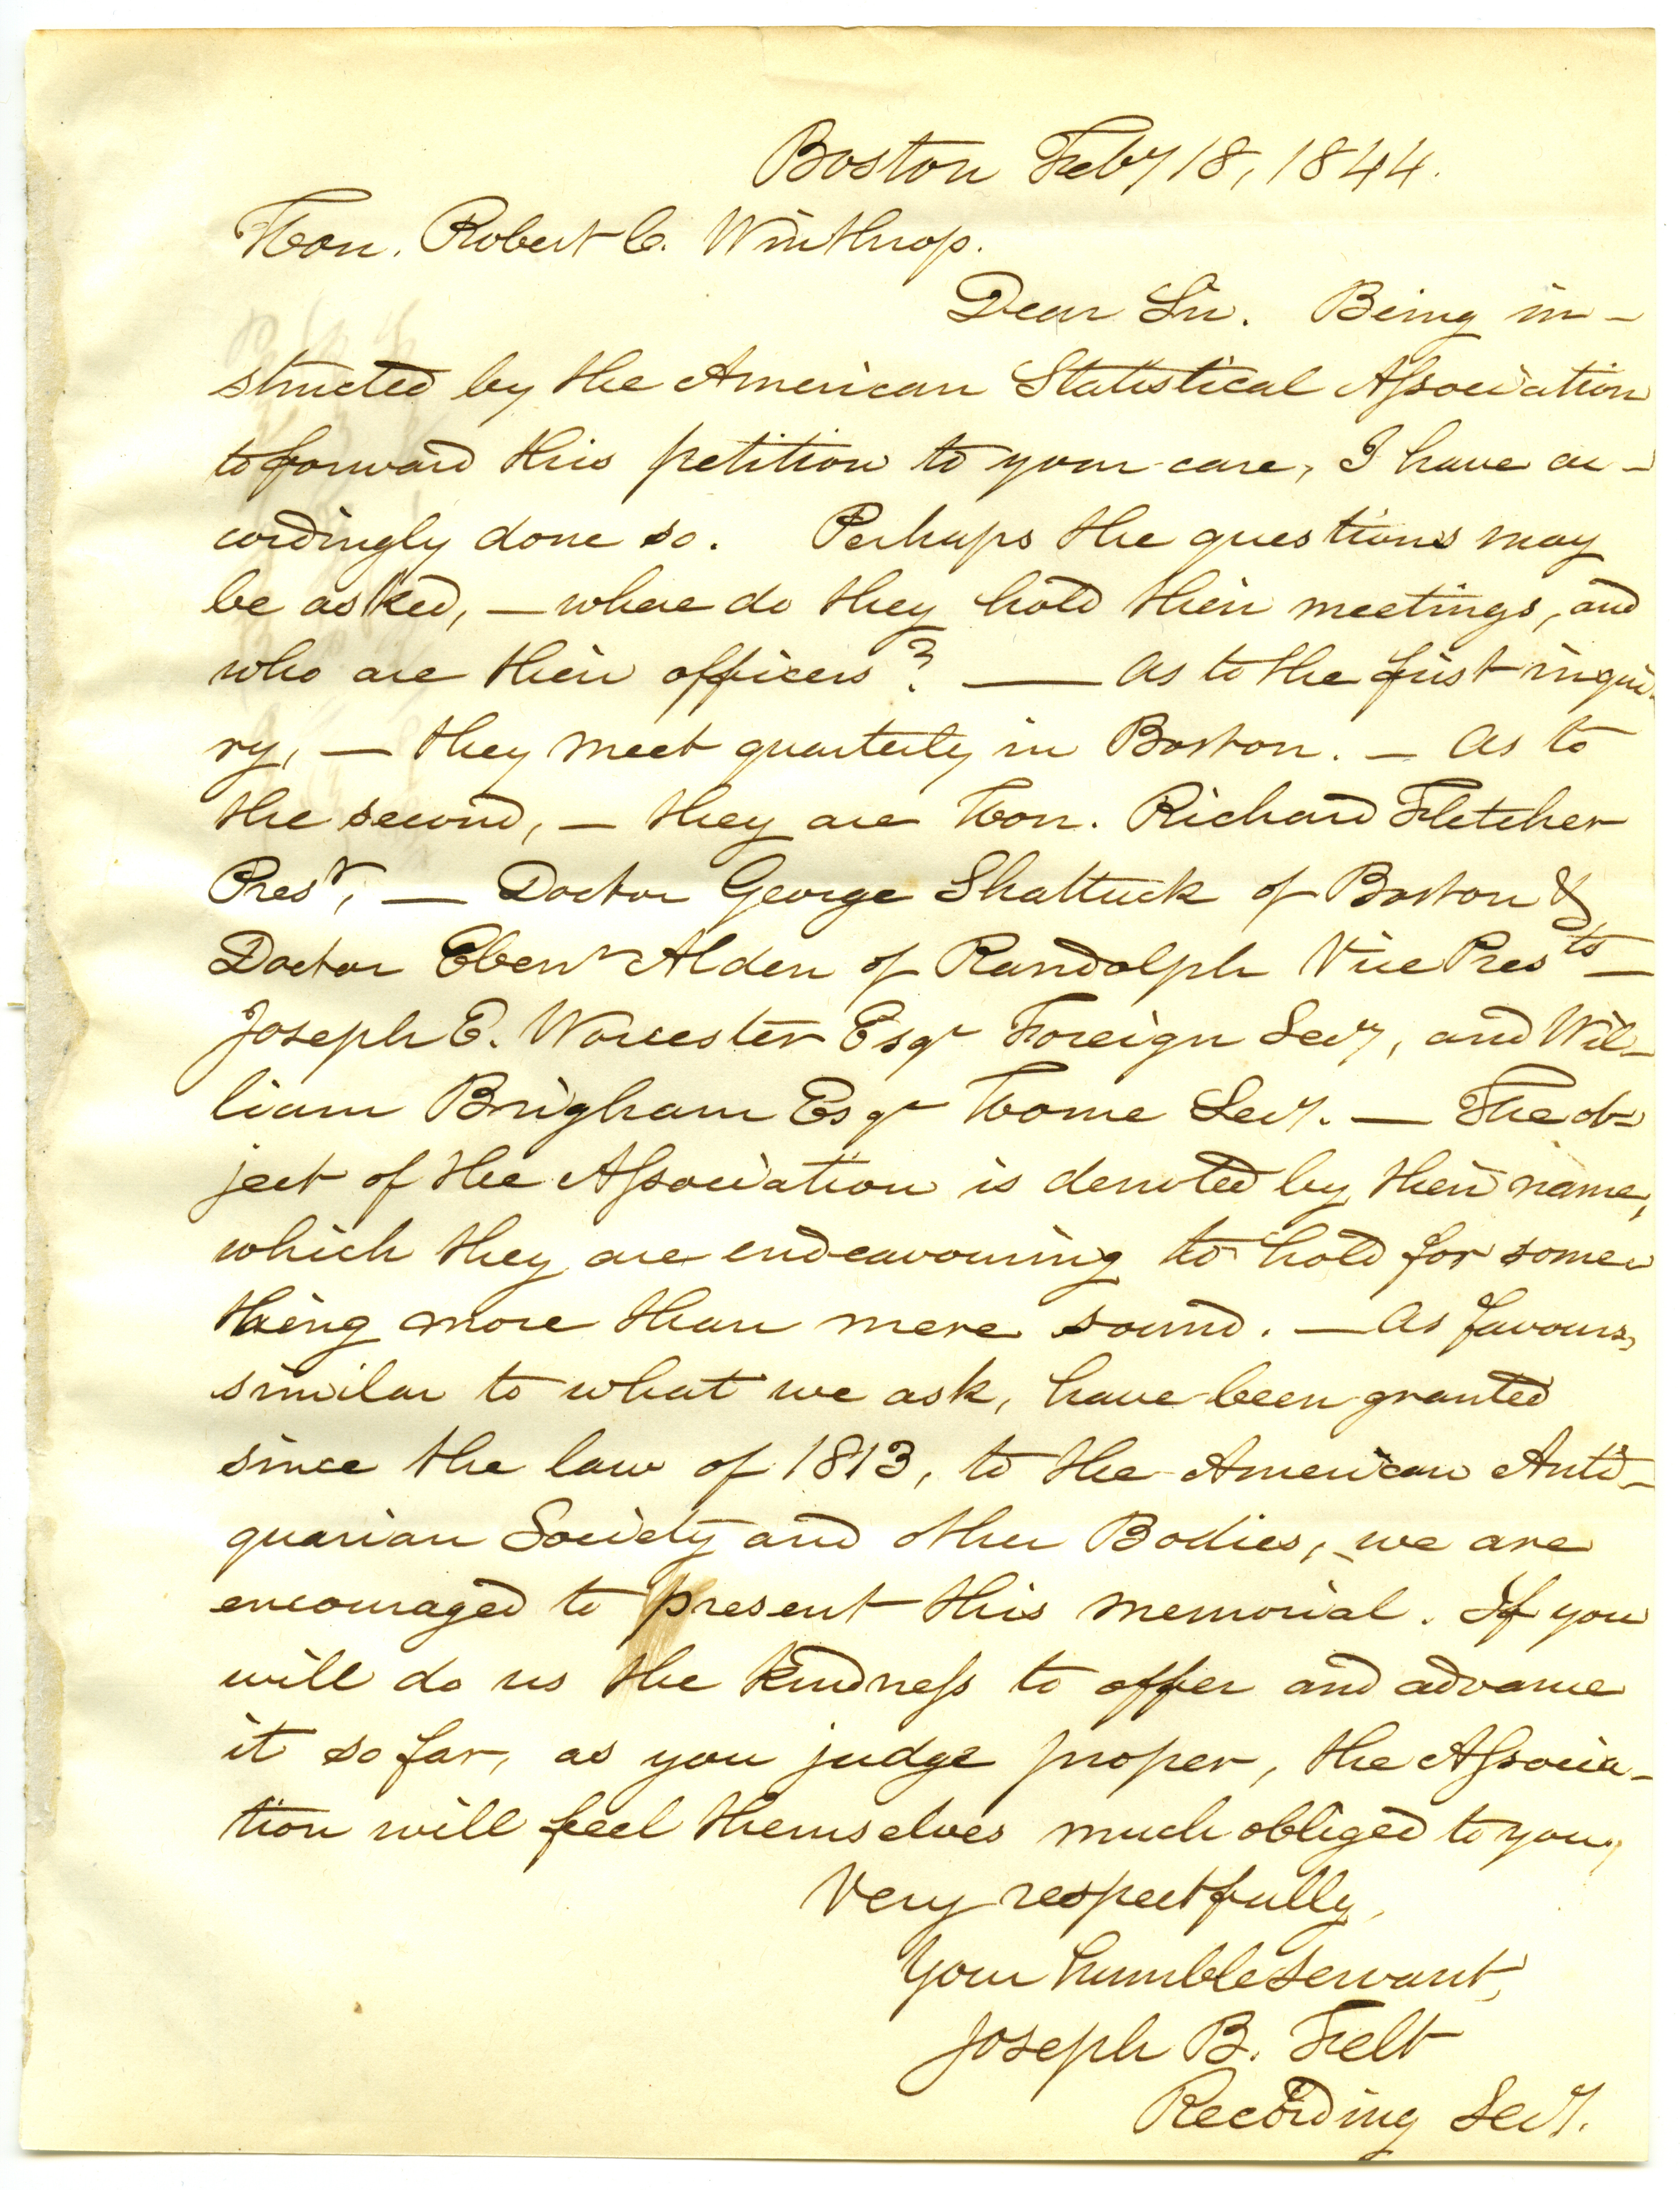 Boston Feby 18, 1844.
Hon. Robert C. Winthrop.
Dear Sir. Being in-
structed by the American Statistical Aſsociation
to forward this petition to your care, I have ac-
cordingly done so. Perhaps the questions may
be asked, — where do they hold their meetings, and
who are their officers? — As to the first inqui-
ry, — they meet quarterly in Boston. — As to
the second, — they are Hon. Richard Fletcher
Prest, — Doctor George Shattuck of Boston &
Doctor Ebenr Alden of Randolph Vice Prests —
Joseph E. Worcester Esqr Foreign Secy, and Wil-
liam Brigham Esqr Home Secy. — The ob=
ject of the Aſsociation is denoted by their name,
which they are endeavouring to hold for some-
thing more than mere sound. — As favours,
similar to what we ask, have been granted
since the law of 1813, to the American Anti-
quarian Society and other Bodies, we are
encouraged to present this memorial. If you
will do us the kindneſs to offer and advance
it so far, as you judge proper, the Aſsocia-
tion will feel themselves much obliged to you,
Very respectfully,
Your humble servant,
Joseph B. Felt
Recording Secy.